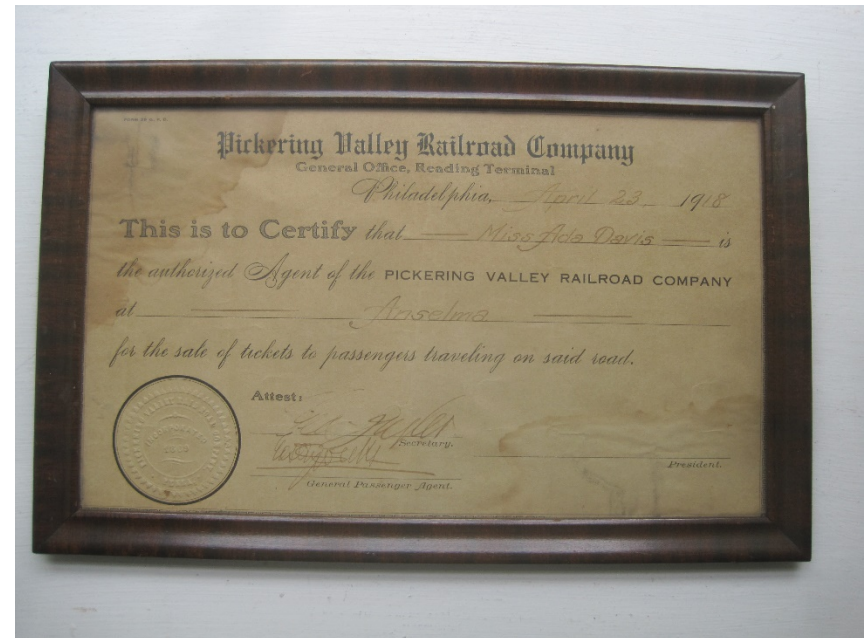 Pickering Valley Railroad Company
General Office, Reading Terminal
Philadelphia, April 23 1918
This is to Certify that Miss Ada Davis is
the authorized Agent of the PICKERING VALLEY RAILROAD COMPANY
at Anselma
for the sale of tickets to passengers traveling on said road.
Attest:
Secretary.
President.
General Passenger Agent.